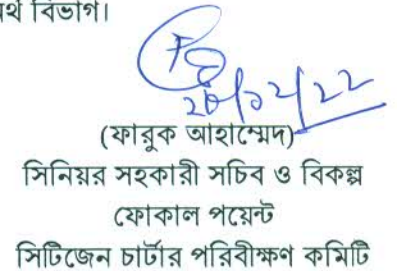 র্থ বিভাগ।
২০/১২/২২
(ফারুক আহাম্মেদ)
সিনিয়র সহকারী সচিব ও বিকল্প
ফোকাল পয়েন্ট
সিটিজেন চার্টার পরিবীক্ষণ কমিটি